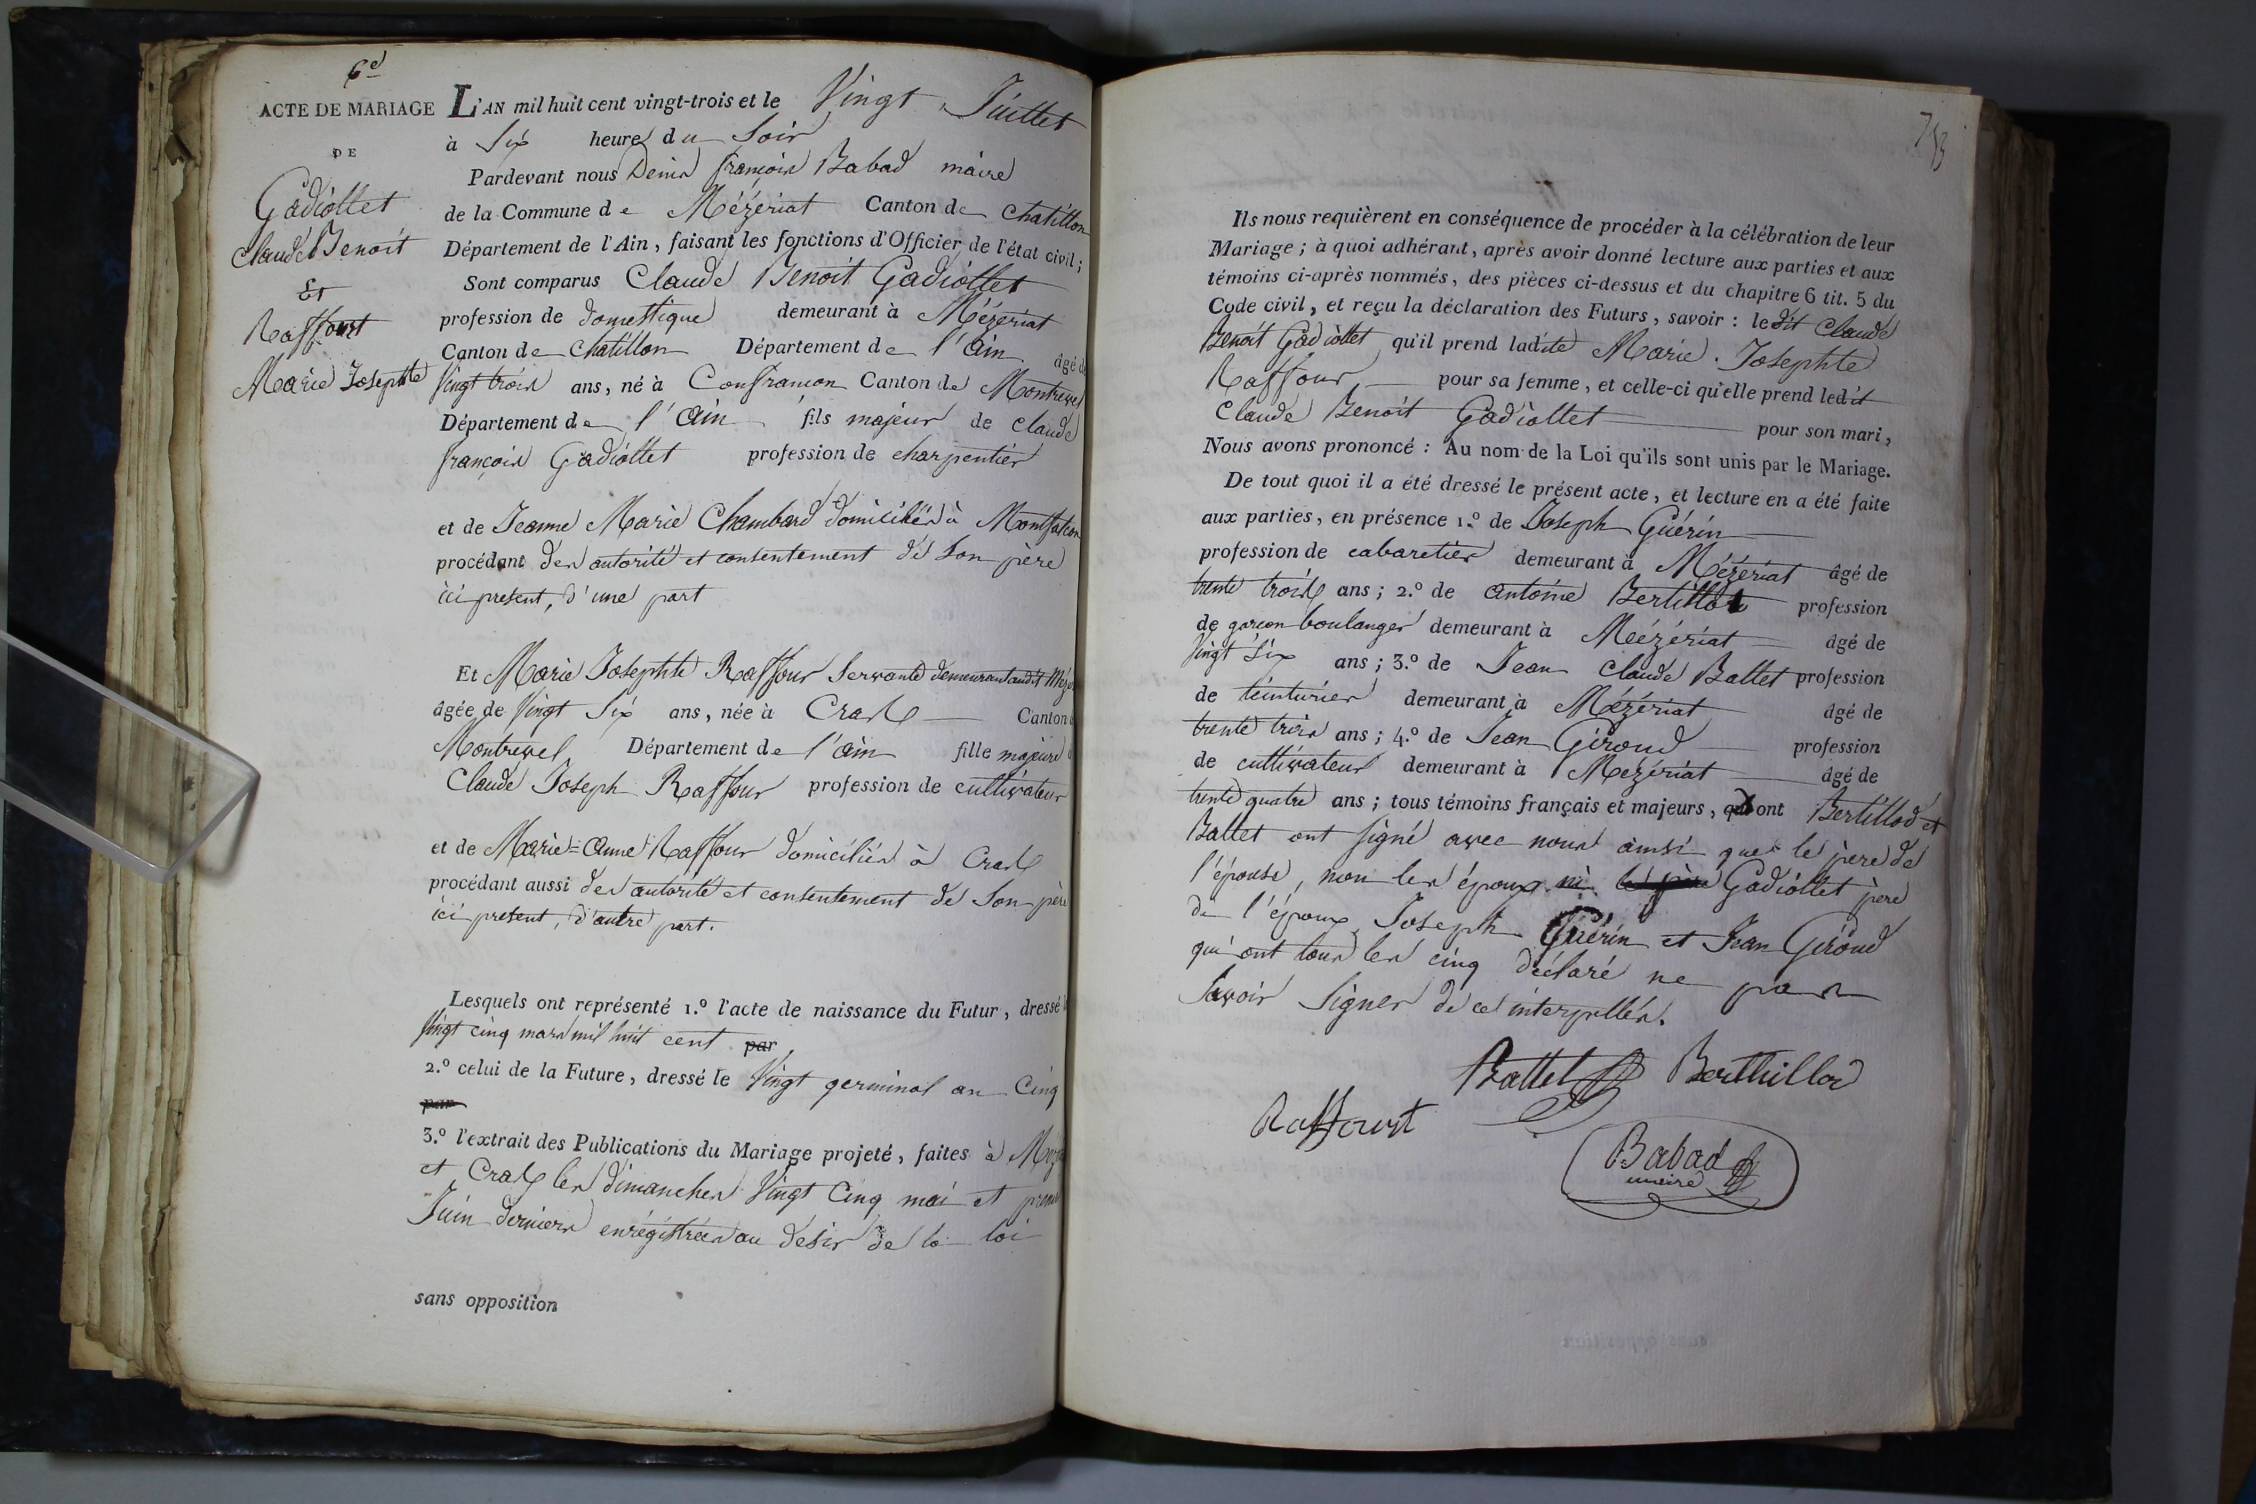 6e
ACTE DE MARIAGE
DE
Gadiollet
Claude Benoit
Et
Raffourt
Marie Josephte
L'AN mil huit cent vingt-trois et le Vingt Juillet
à Six heures du Soir
Pardevant nous Denis françois Babad maire
de la Commune de Mézériat Canton de Chatillon
Département de l'Ain, faisant les fonctions d'Officier de l'état civil;
Sont comparus Claude Benoit Gadiollet
profession de domestique demeurant à Mézériat
Canton de Chatillon Département de l'Ain âgé de
Vingt trois ans, né à Confrançon Canton de Montrevel
Département de l'Ain fils majeur de Claude
françois Gadiollet profession de charpentier
et de Jeanne Marie Chambard domiciliés à Montfalcon
procédant des autorité et consentement de Son père
ici present, d'une part
Et Marie Josephte Raffour Servante demeurant audit Méz
âgée de Vingt Six ans, née à Cras Canton
Montrevel Département de l'ain fille majeure
Claude Joseph Raffour profession de cultivateur
et de Marie=Anne Raffour domiciliés à Cras
procédant aussi des autorité et consentement de Son père
ici present, d'autre part.
Lesquels ont représenté 1.º l'acte de naissance du Futur, dressé
Vingt cinq mars mil huit cent par
2.º celui de la Future, dressé le Vingt germinal an Cinq
par
3.º l'extrait des Publications du Mariage projeté, faites à Méz
et Cras les dimanches Vingt Cinq mai et premier
Juin derniers enrégistrées au désir de la loi
sans opposition
Ils nous requièrent en conséquence de procéder à la célébration de leur
Mariage; à quoi adhérant, après avoir donné lecture aux parties et aux
témoins ci-après nommés, des pièces ci-dessus et du chapitre 6 tit. 5 du
Code civil, et reçu la déclaration des Futurs, savoir: ledit Claude
Benoit Gadiollet qu'il prend ladite Marie Josephte
Raffour pour sa femme, et celle-ci qu'elle prend ledit
Claude Benoit Gadiollet pour son mari,
Nous avons prononcé: Au nom de la Loi qu'ils sont unis par le Mariage.
De tout quoi il a été dressé le présent acte, et lecture en a été faite
aux parties, en présence 1.º de Joseph Guérin
profession de cabaretier demeurant à Mézériat âgé de
trente trois ans; 2.º de Antoine Bertillod profession
de garcon boulanger demeurant à Mézériat âgé de
Vingt Six ans; 3.º de Jean Claude Battet profession
de teinturier demeurant à Mézériat âgé de
trente trois ans; 4.º de Jean Giroud profession
de cultivateur demeurant à Mézériat âgé de
trente quatre ans; tous témoins français et majeurs, qui ont Bertillod et
Battet ont Signé avec nous ainsi que le père de
l'épouse, non les époux ni Gadiollet père
de l'époux, Joseph Guérin et Jean Giroud
qui ont tous les cinq déclaré ne pas
Savoir Signer de ce interpellés.
Battet Berthillod
Raffourt
Babad
maire